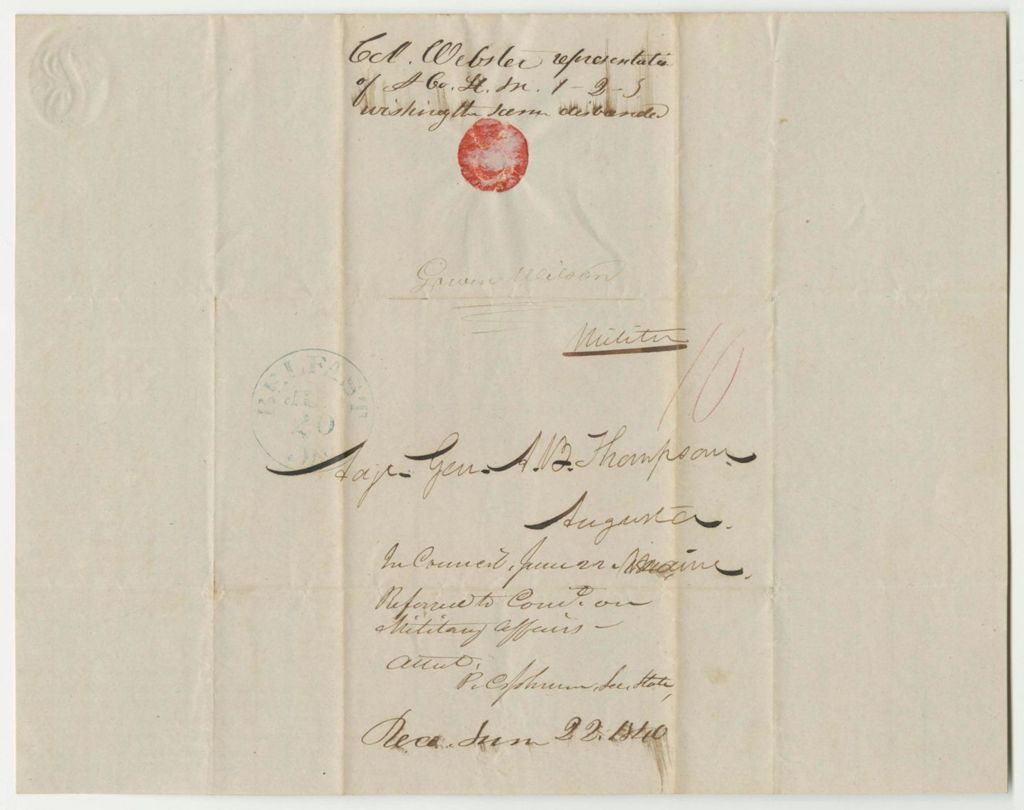 Col. Webster representatio
of A Co. L. In. 1-2-5
wishing the same disbanded
Militia
10
BELFAST
20
Adjt. Gen. A. B. Thompson
Augusta.
Maine.
In Council, June 22
Referred to Com. on
Military Affairs -
Attest,
P. C. Johnson Sec. State,
Rec. June 22. 1840